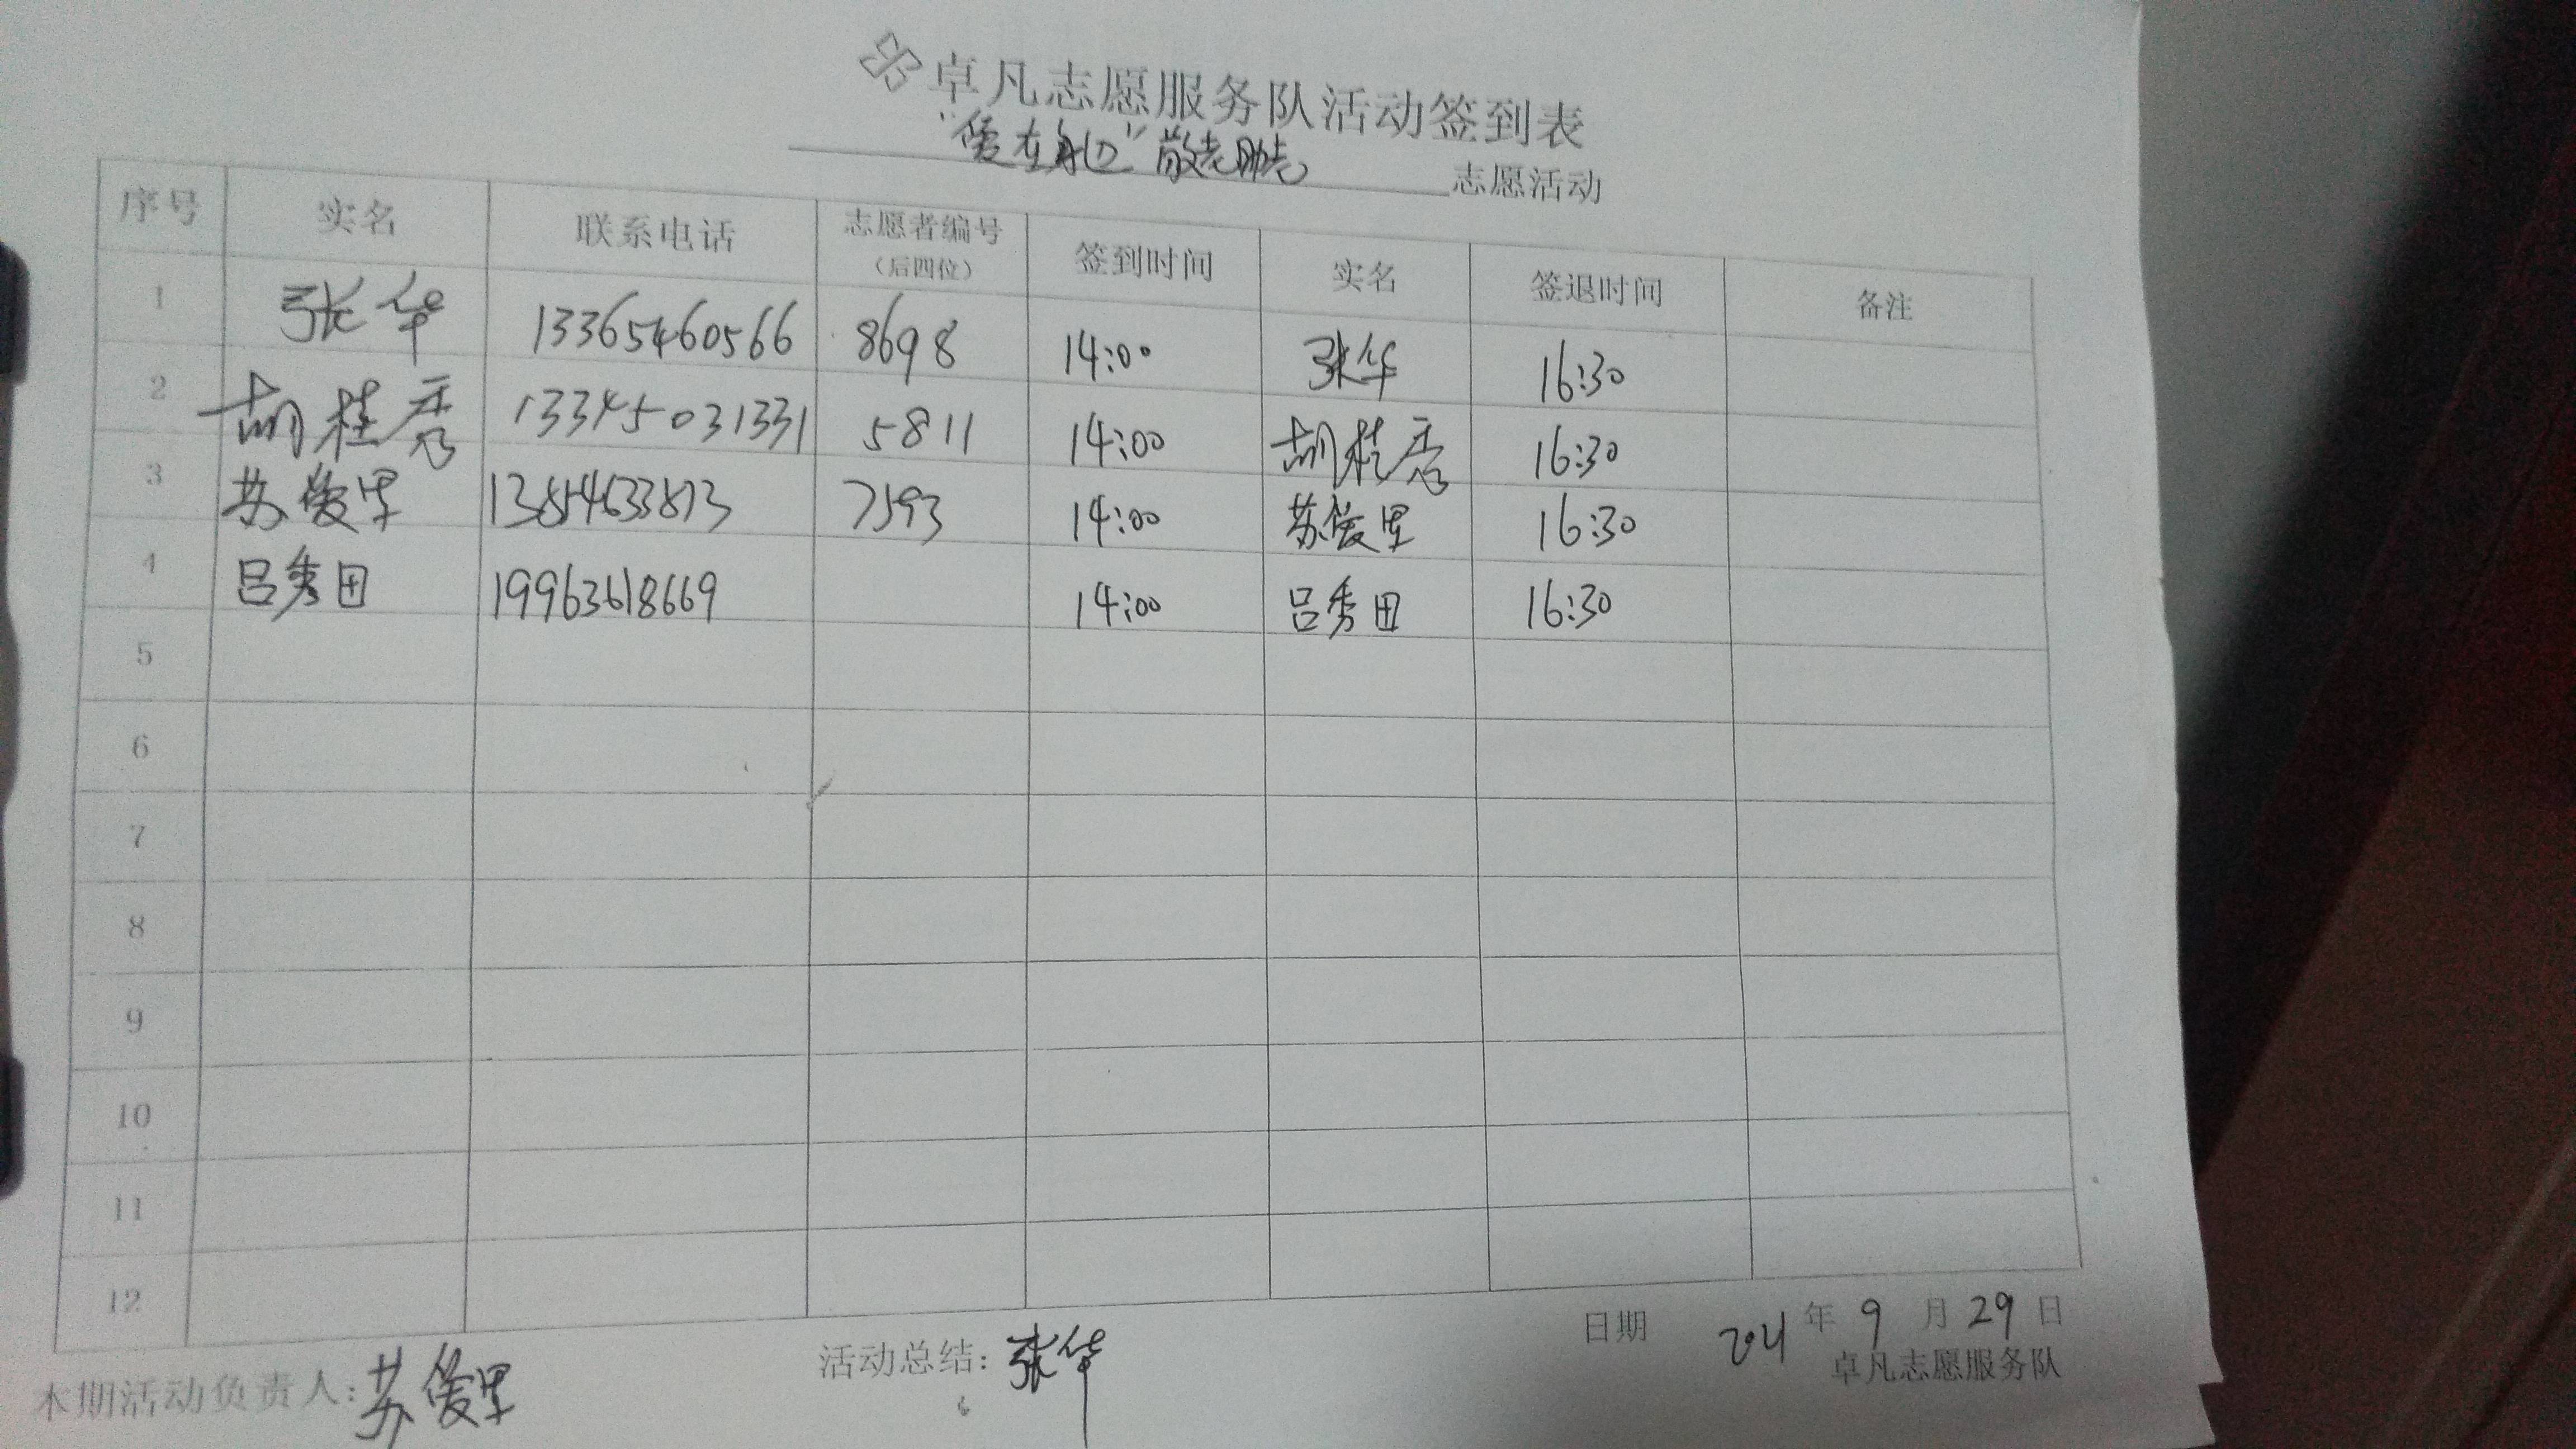 卓凡志愿服务队活动签到表
"爱在身边"敬老助老 志愿活动
序号 实名 联系电话 志愿者编号（后四位） 签到时间 实名 签退时间 备注
1 张华 13365460566 8698 14:00 张华 16:30
2 胡桂秀 13345031331 5811 14:00 胡桂秀 16:30
3 苏俊里 7593 14:00 苏俊里 16:30
4 吕秀田 19963618669 14:00 吕秀田 16:30
5
6
7
8
9
10
11
12
本期活动负责人:苏俊里 活动总结:张华 日期 年 9 月 29 日
卓凡志愿服务队